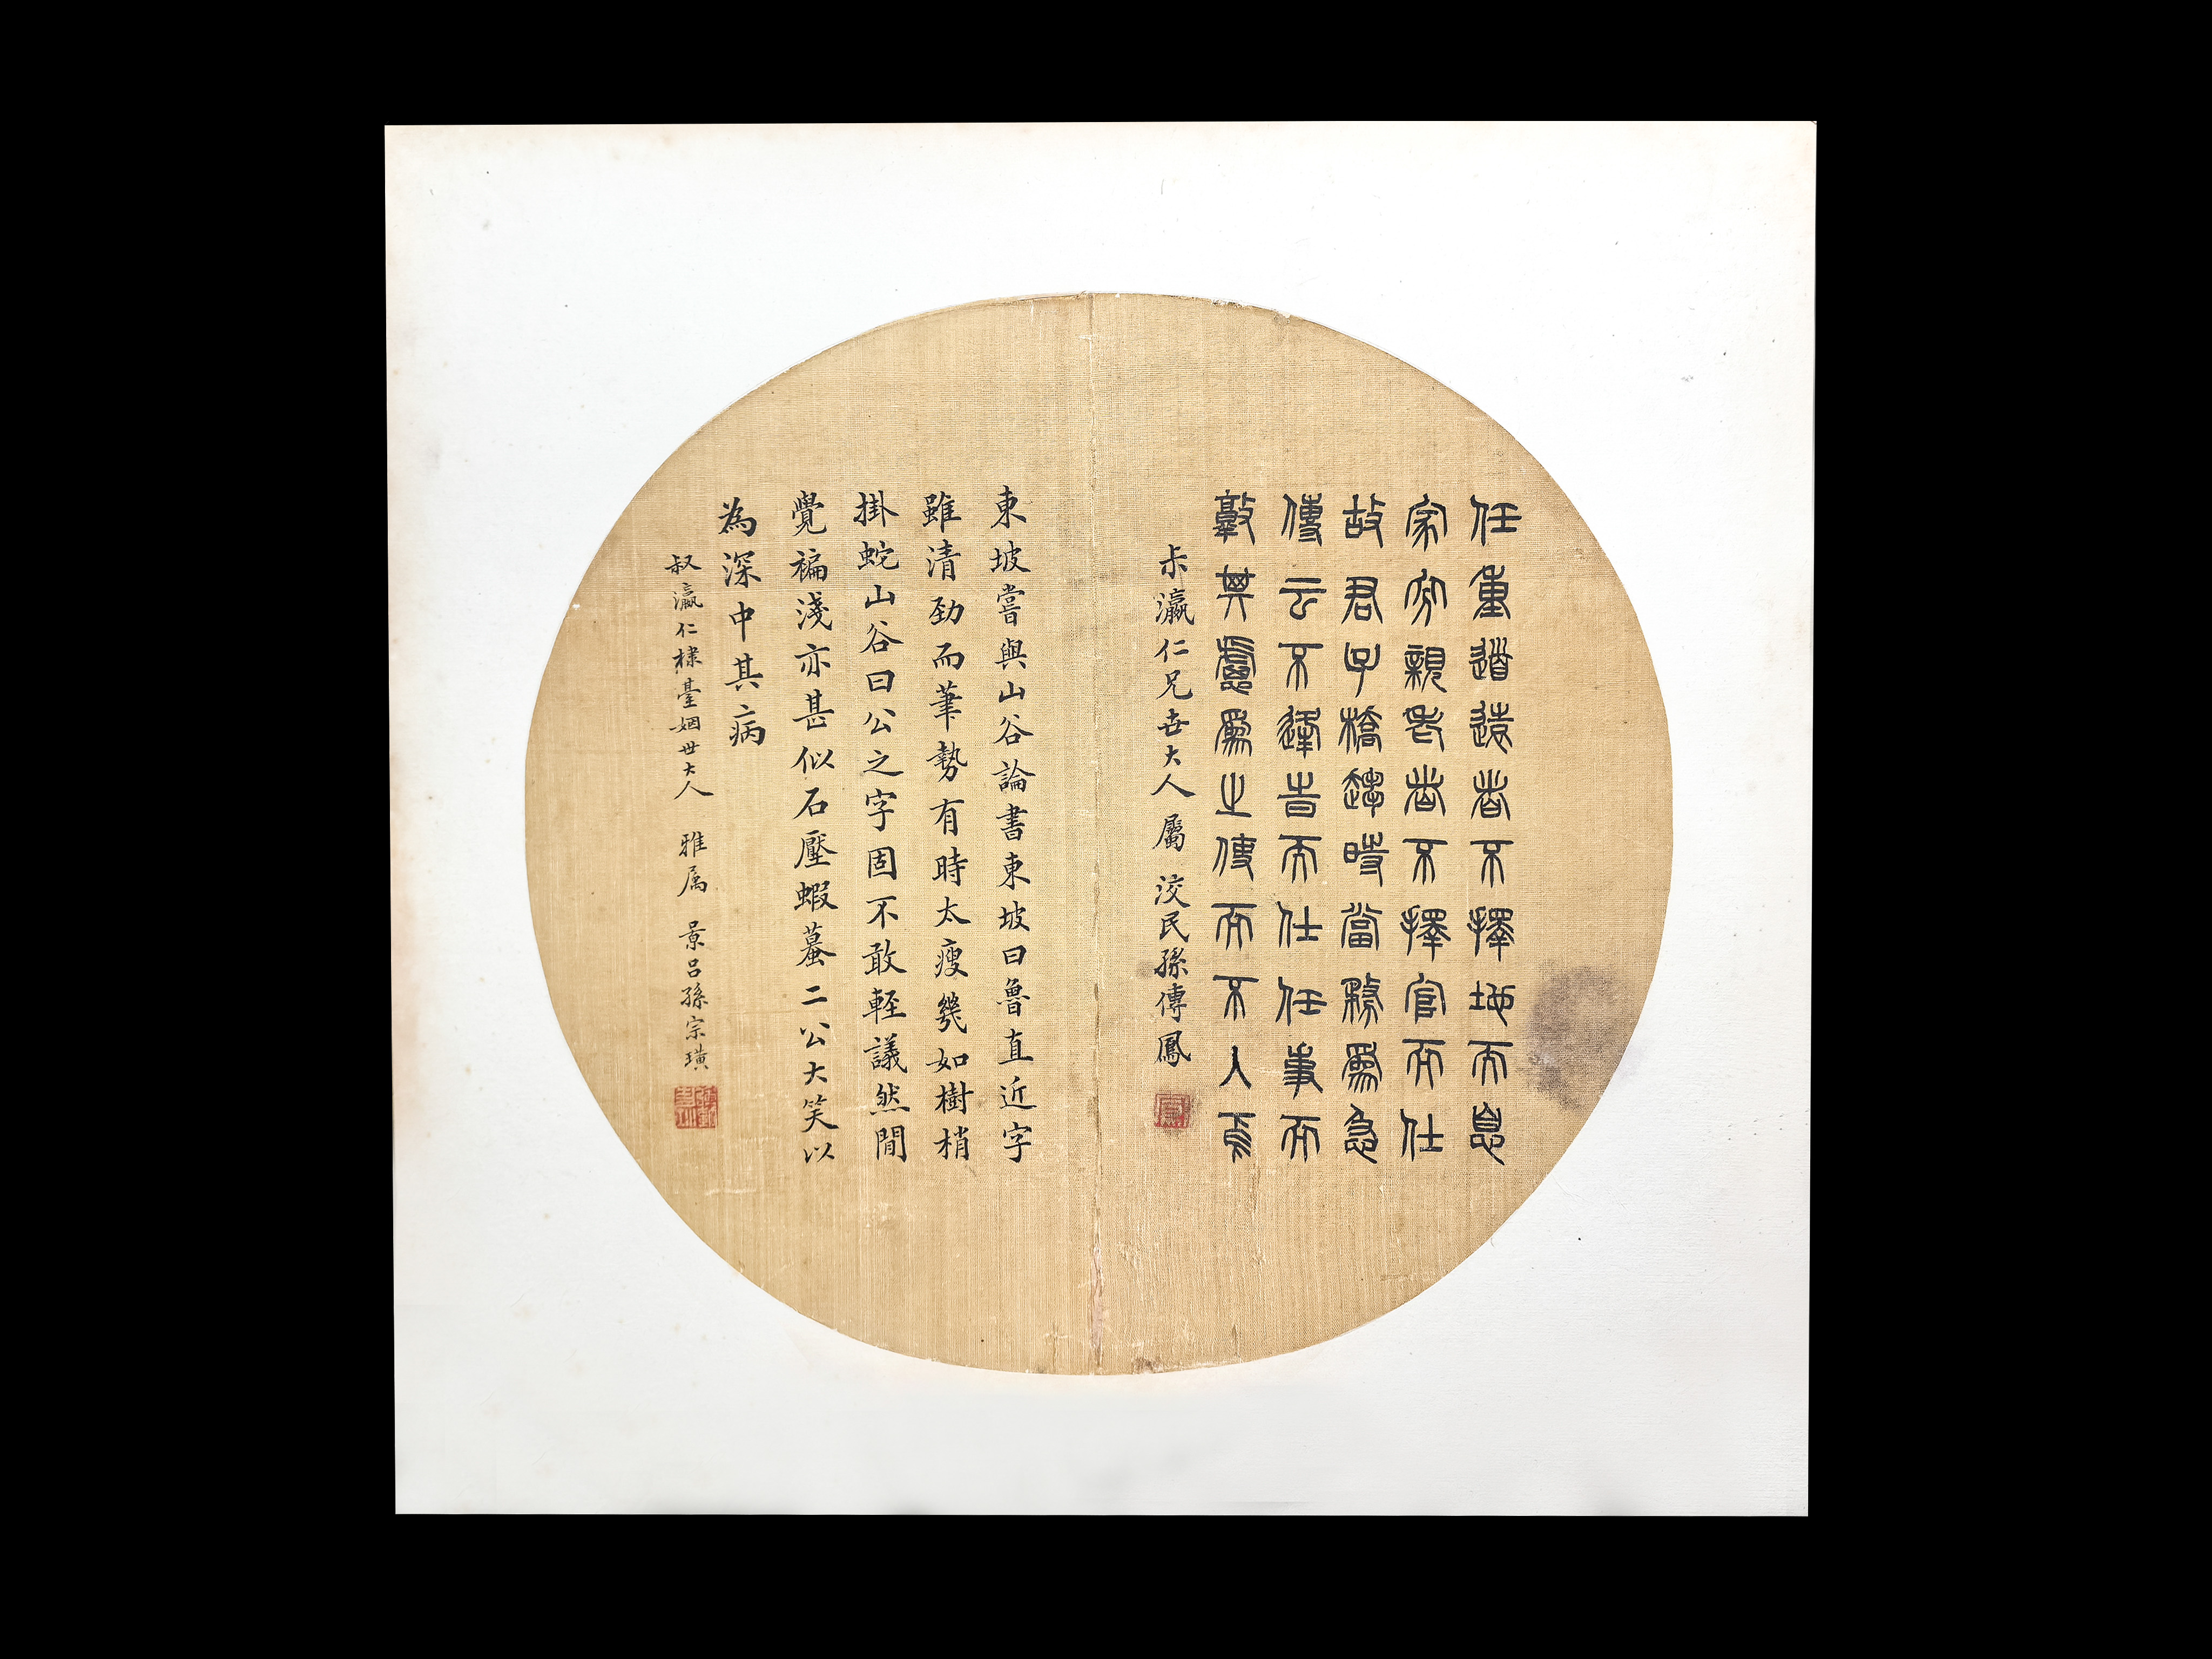 任重道遠者不擇地而息
家貧親老者不擇官而仕
故君子橋時當務爲急
傳云不逢旹而仕任事而
敦其慮爲之使而不入焉
尗瀛仁兄世大人屬 洨民孫傳鳳
東坡嘗與山谷論書東坡曰魯直近字
雖清勁而筆勢有時太瘦幾如樹梢
掛蛇山谷曰公之字固不敢輕議然間
覺褊淺亦甚似石壓蝦蟇二公大笑以
為深中其病
叔瀛仁棣臺姻世大人 雅属 景呂孫宗璜